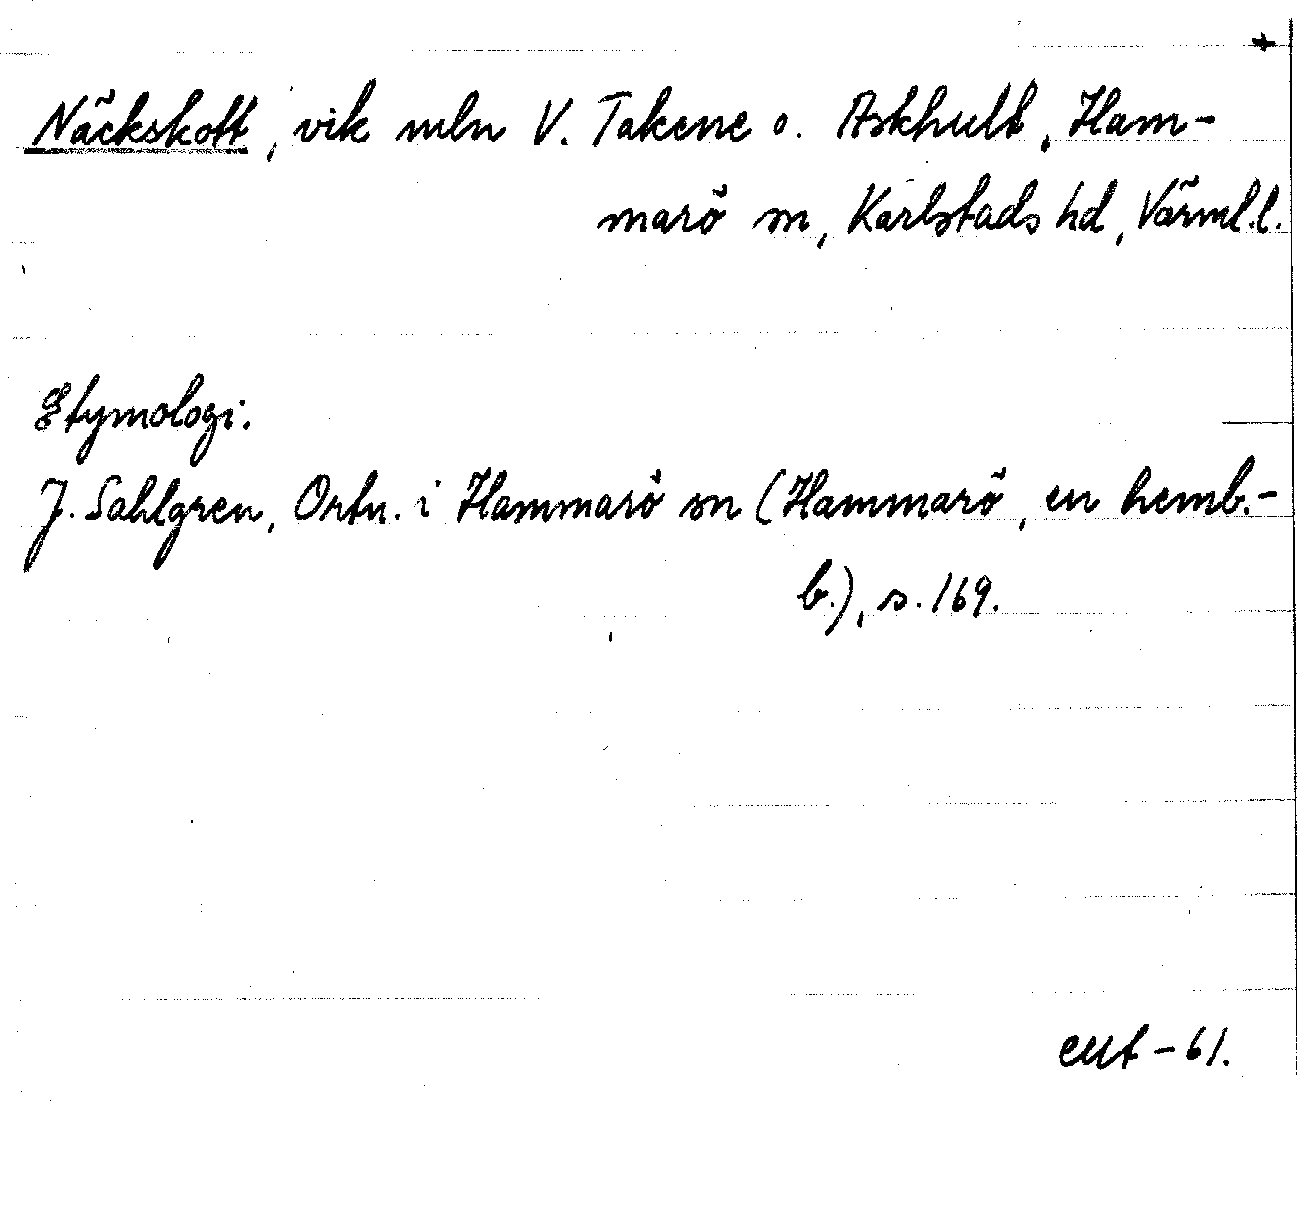 +
Näckskott, vik mln V. Takene o. Askhult, Ham-
marö sn, Karlstads hd, Värml.l.
Etymologi.
J. Sahlgren, Ortn. i Hammarö sn (Hammarö, en hemb.-
b.), s. 169.
-61.